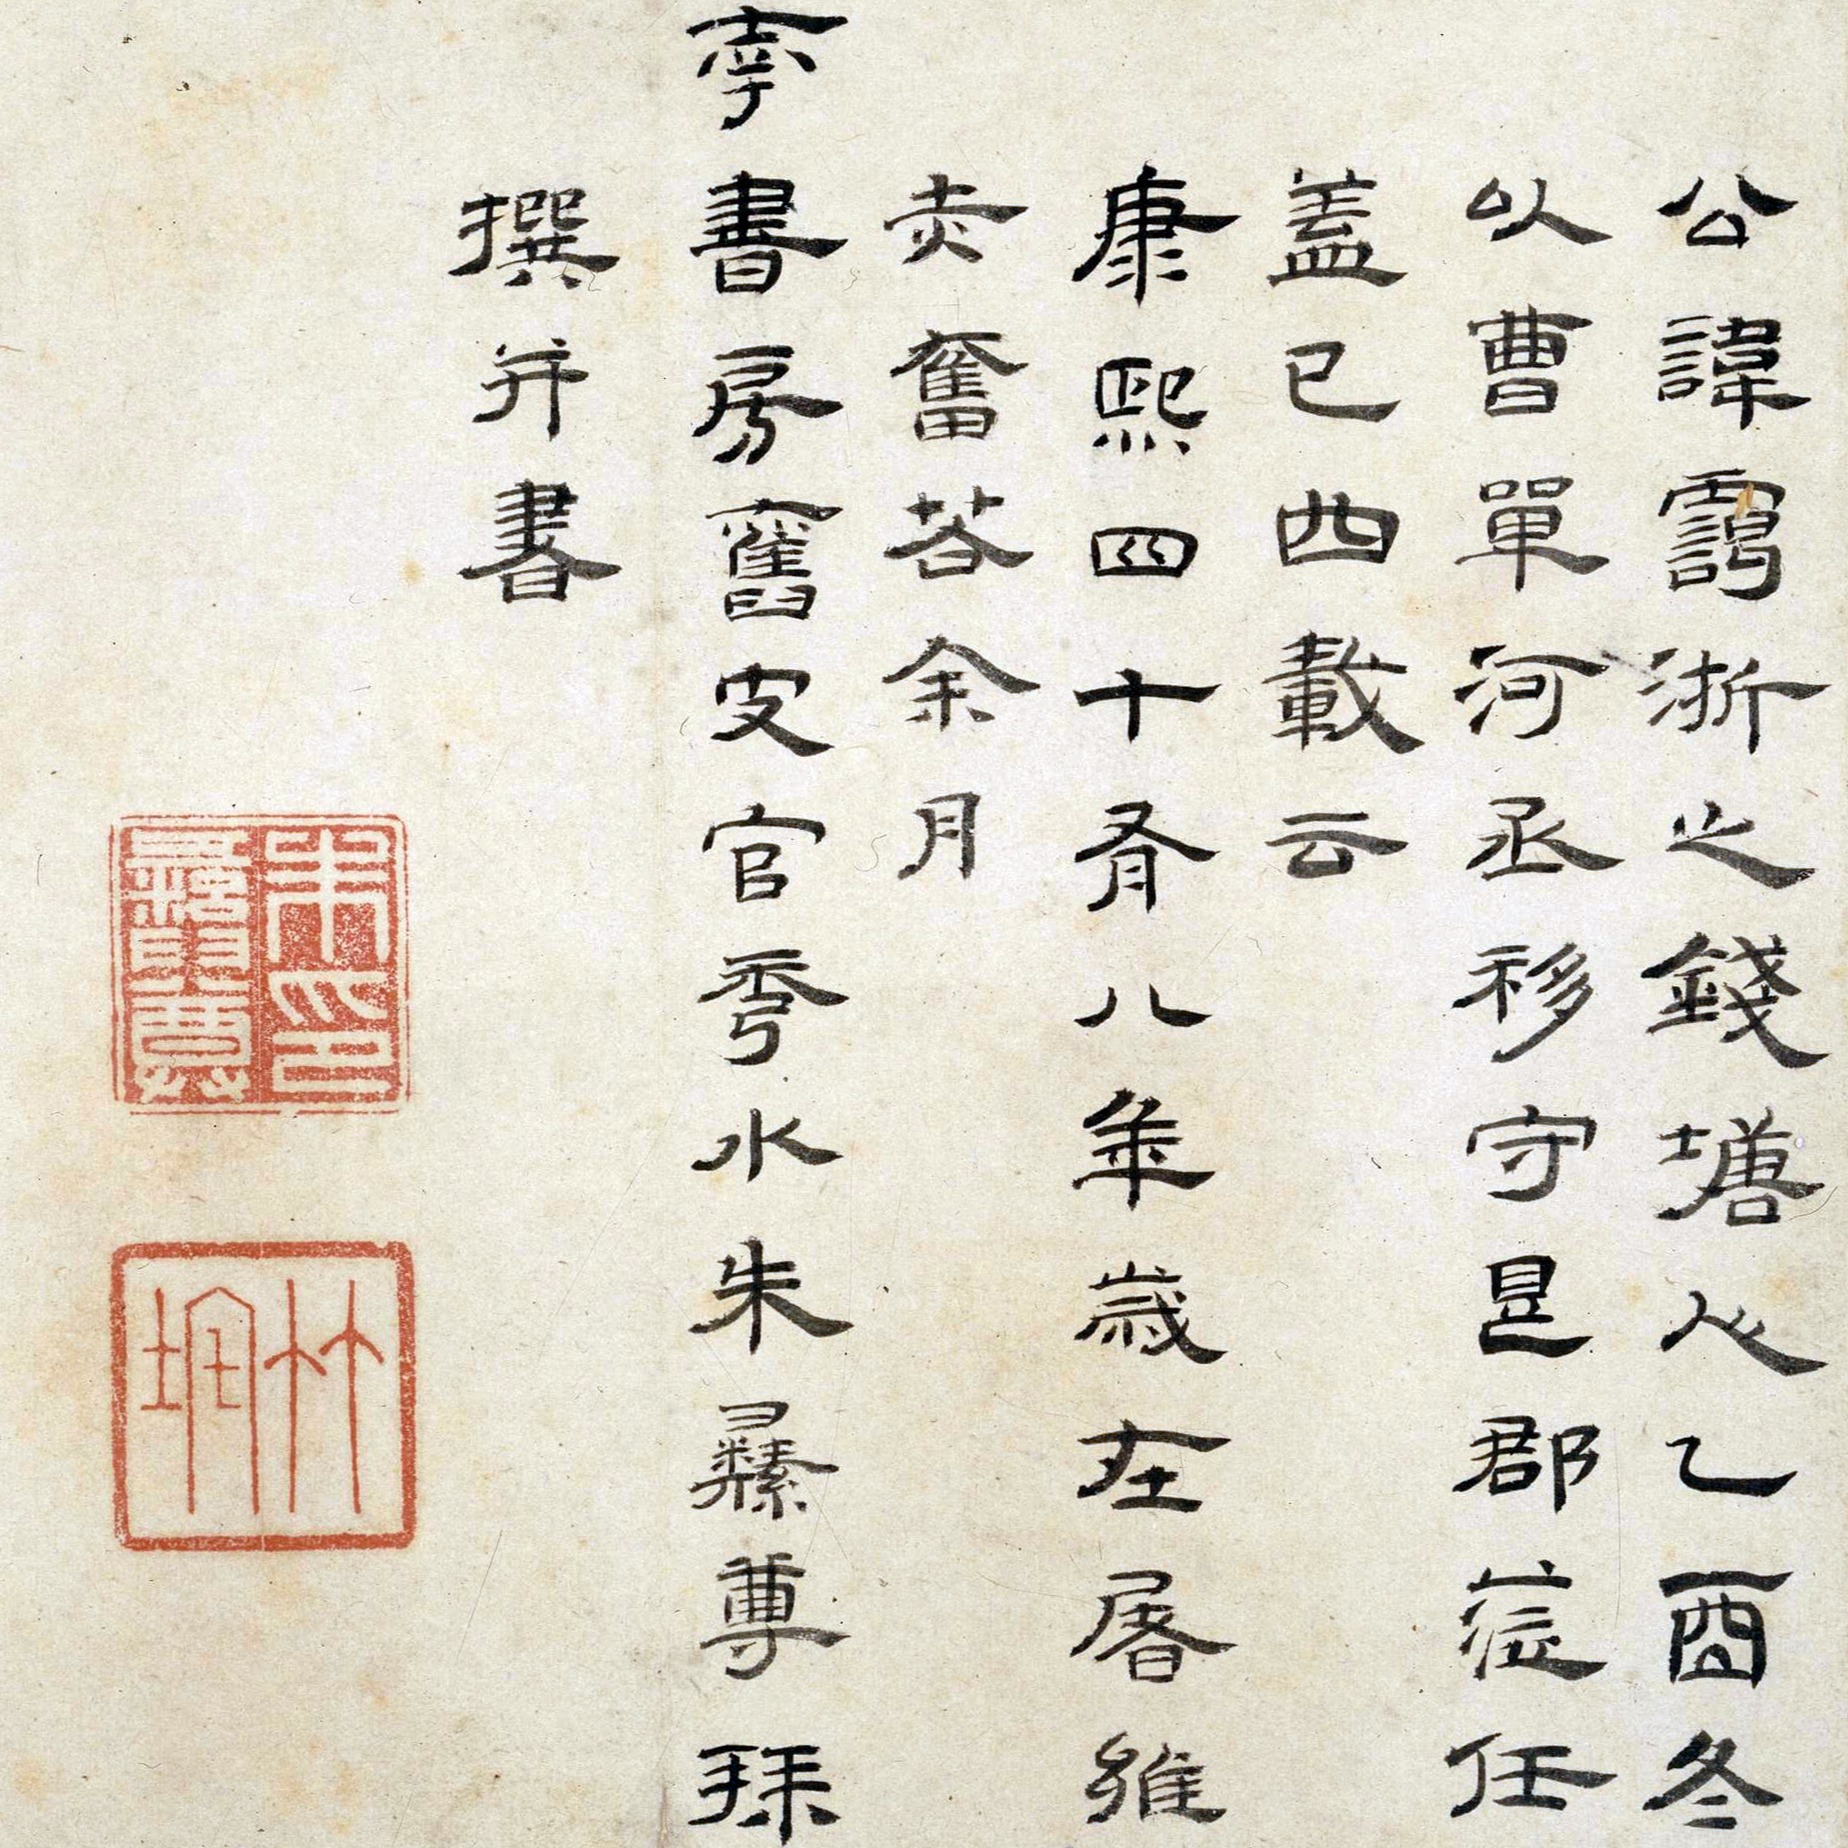 公諱靄浙之錢塘人乙酉冬
以曹單河丞移守是郡蒞任
蓋已四載云
康熙四十有八年歲在屠維
赤奮若余月
南書房舊史官秀水朱彝尊拜
撰并書
朱印彝尊
竹垞